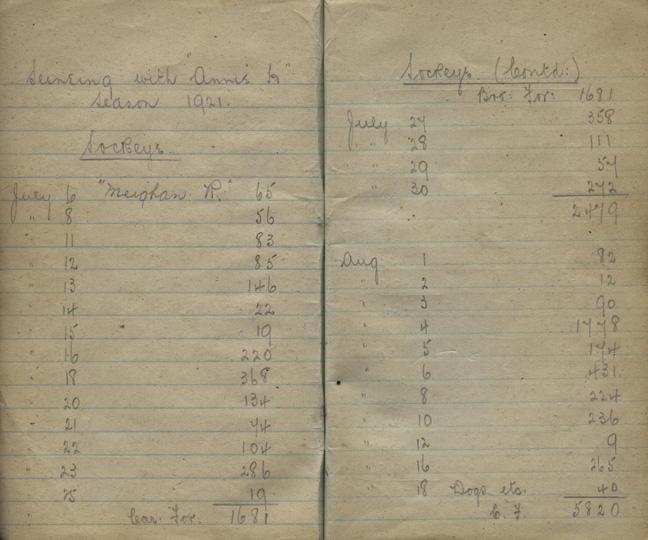 Seineing with "Annis H"
Season 1921.
Sockeys
July 6 "Meighan R." 65
" 8 56
" 11 83
" 12 85
" 13 146
" 14 22
" 15 19
" 16 220
" 18 368
" 20 134
" 21 74
" 22 104
" 23 286
" 25 19
" Car. For. 1681
Sockeys. (Contd:)
Bro: For: 1681
July 27 358
" 28 111
" 29 57
" 30 272
2479
Aug 1 82
" 2 12
" 3 90
" 4 1778
" 5 174
" 6 431
" 8 224
" 10 236
" 12 9
" 16 265
" 18 Dogs etc. 40
C. F. 5820